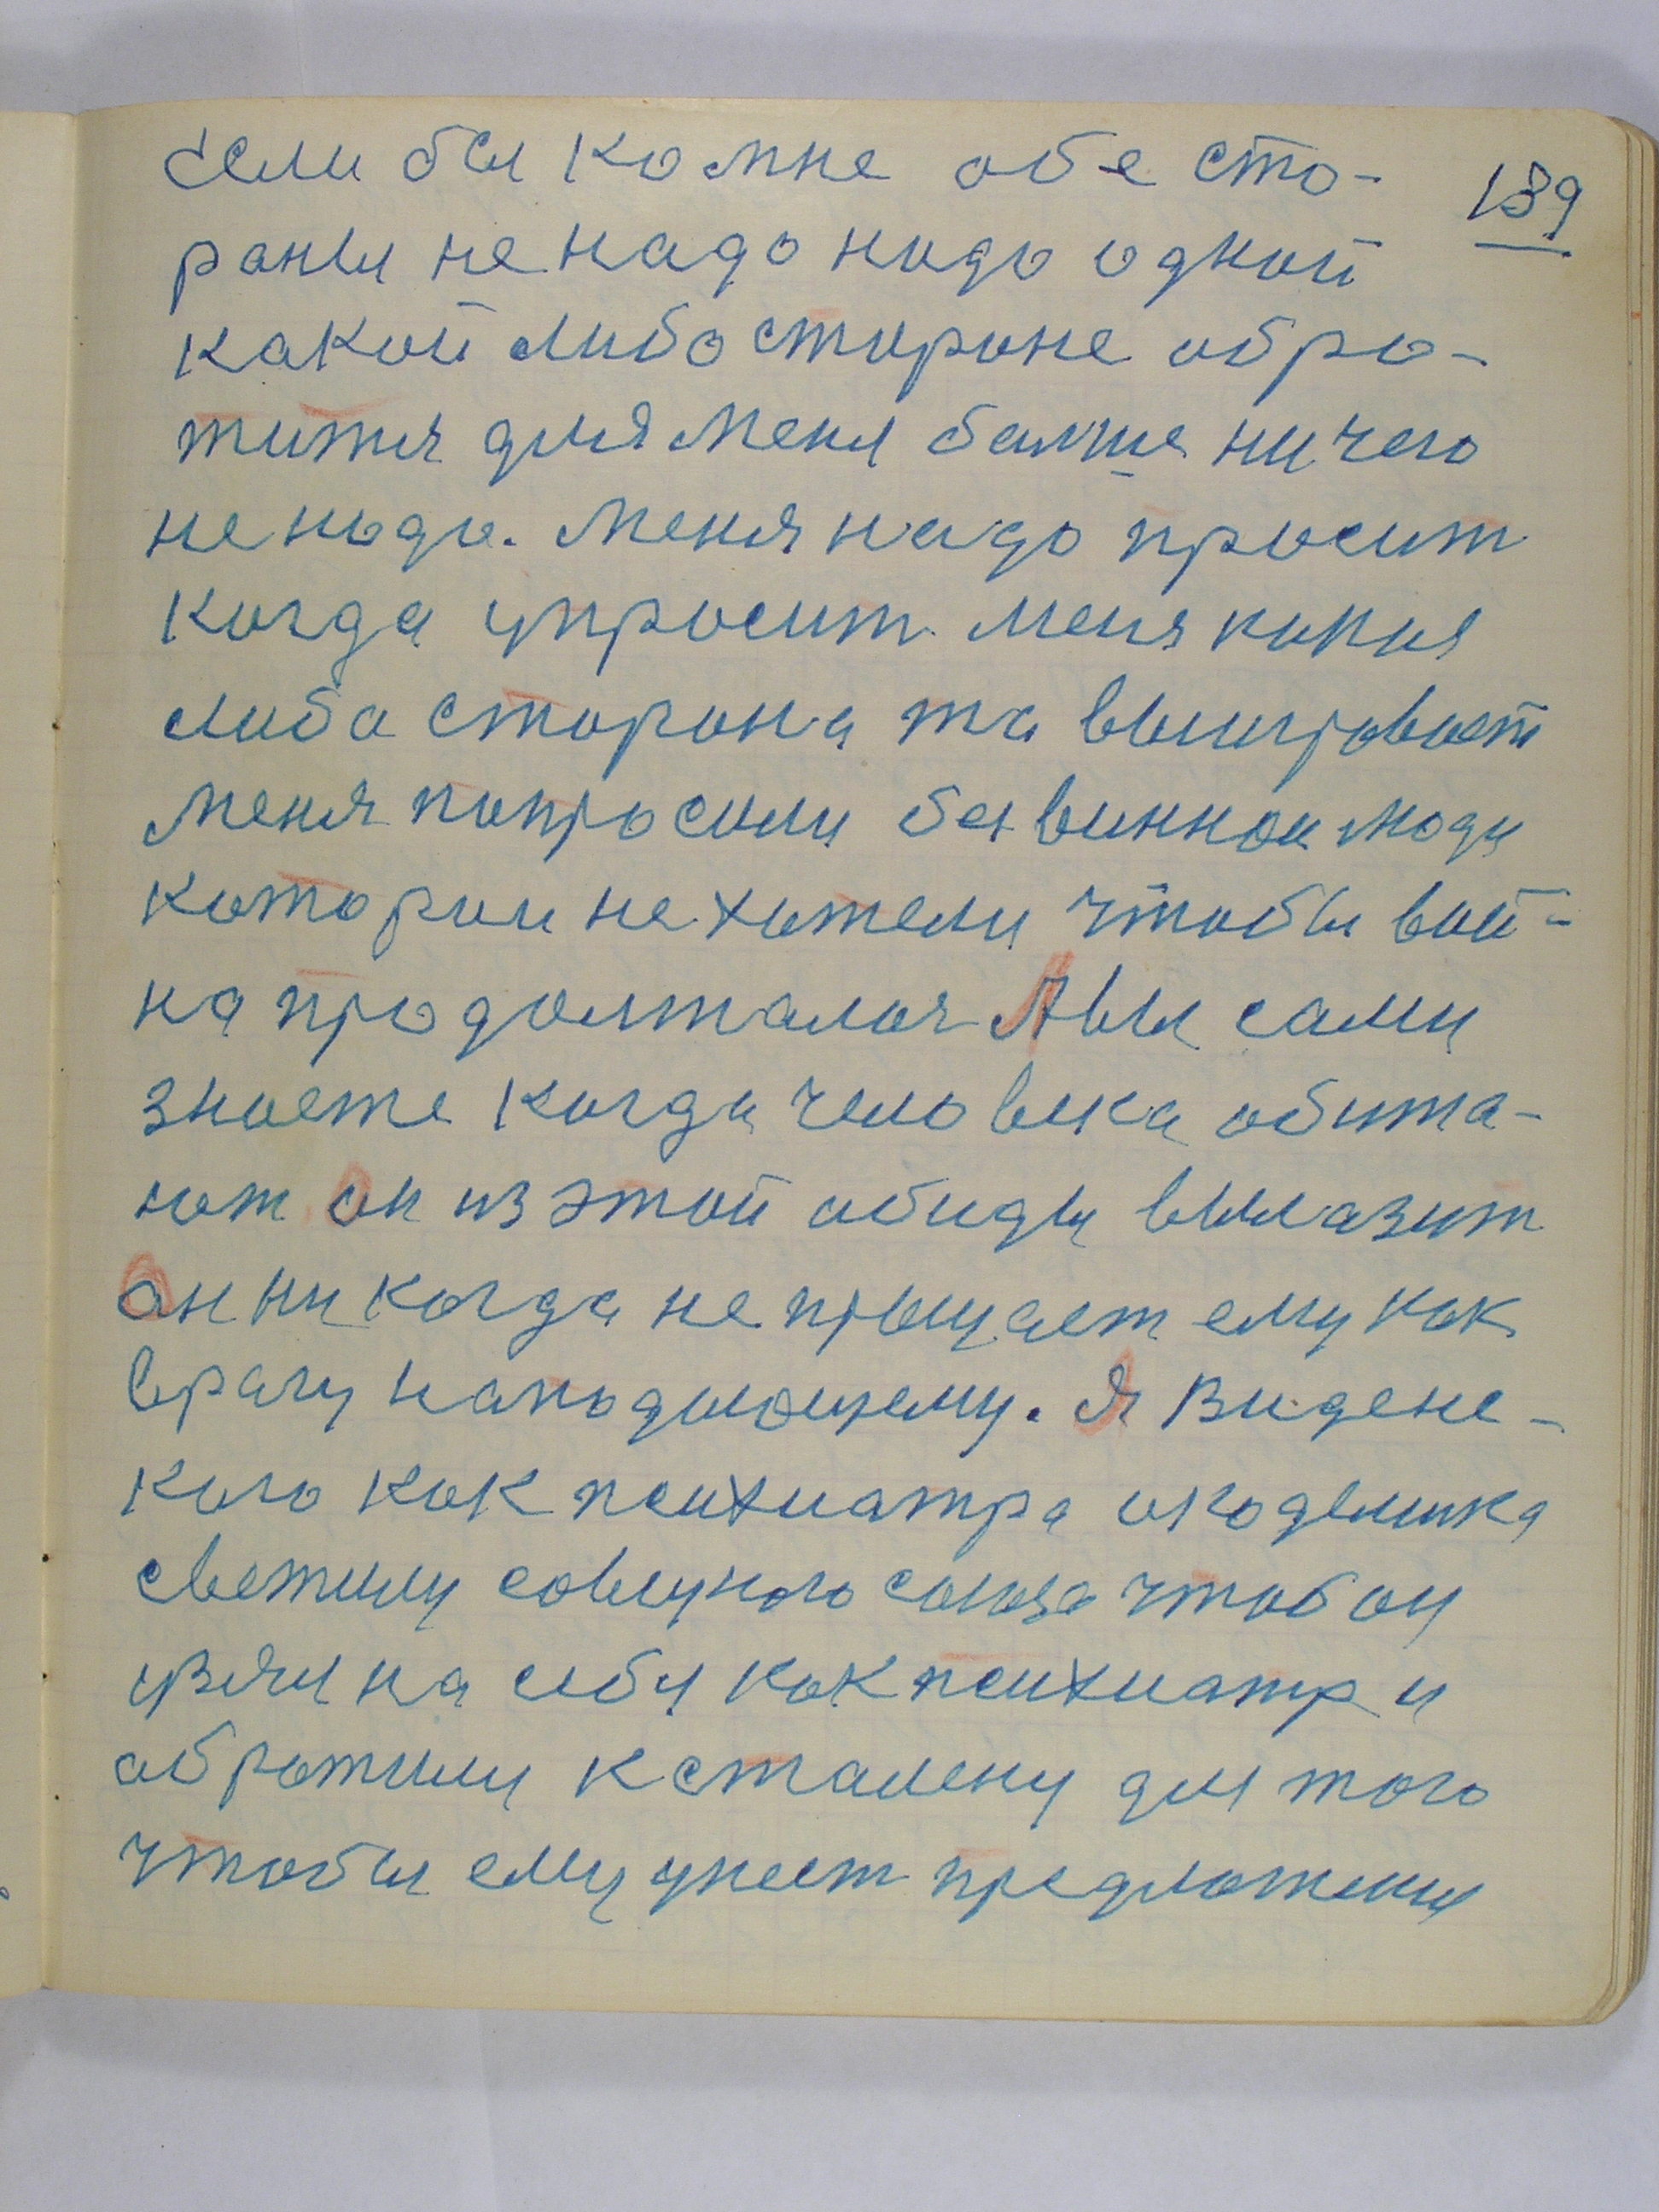 Если бы ко мне обе сто-
139
роны не надо надо одной
какой либо стороне обра-
тится для меня балше ничего
не надо. Меня надо просит
когда упросит меня какая
либа сторона та выигровает
меня попросили безвиннои люди
которои не хотели чтобы вой-
на продолжалоя А вы сами
знаете когда человека обижа-
ют он из этой обиды вылазит
он никогда не прощает ему как
врагу нападающему. Я Виденс-
кого как психиатра окодемика
светилу совецкого союза чтоб он
взял на себя как психиатр и
обротилы к Сталену для того
чтобы ему унест предложения